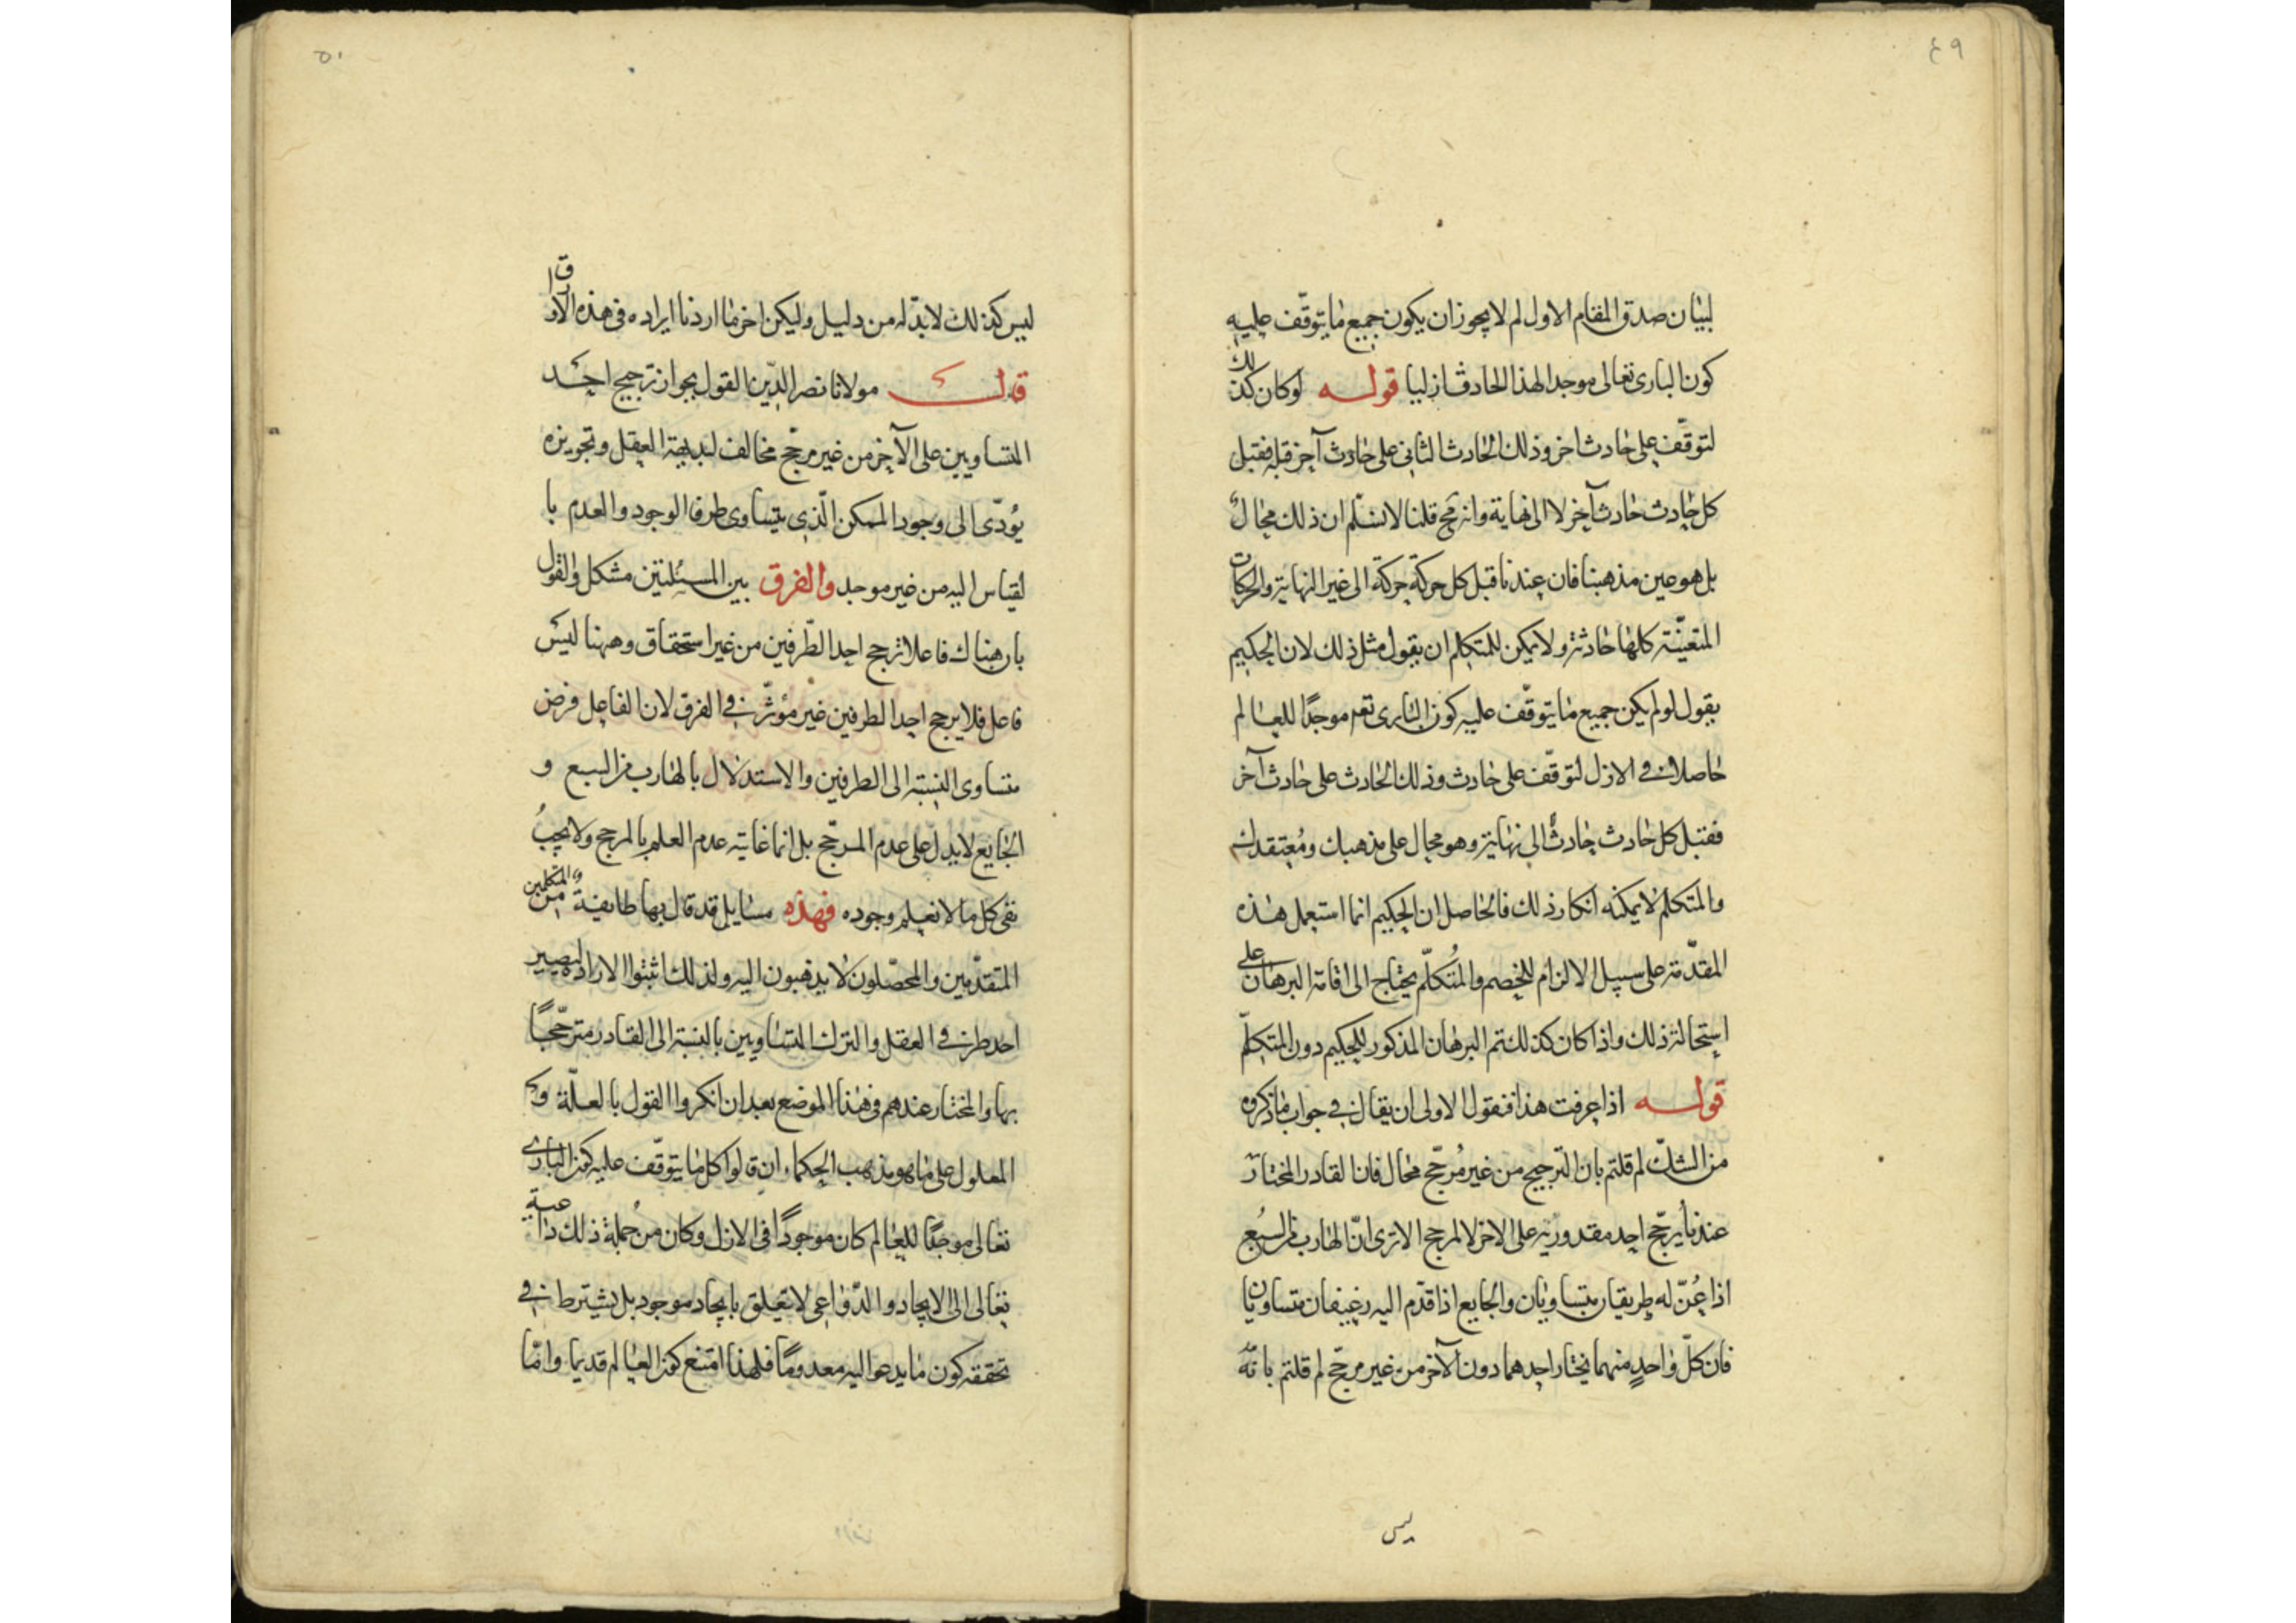 ٤٩
لبيان صدق المقام الاول لم لا يجوز ان يكون جميع ما يتوقّف عليه
كون البارى تعالى موجدا لهذا الحادث ازليا قوله لو كان كذلك
لتوقّف على حادث اخر وذلك الحادث الثانى على حادث آخر قبله فقبل
كل حادث حادث آخر لا الى نهاية وانه مح قلنا لا نسلّم ان ذلك محال
بل هو عين مذهبنا فان عندنا قبل كل حركة حركة الى غير النهاية والحركات
المتعيّنة كلها حادثة ولا يمكن للمتكلم ان يقول مثل ذلك لان الحكيم
يقول لو لم يكن جميع ما يتوقّف عليه كون البارى تعم موجدًا للعالم
حاصلا فى الازل لتوقّف على حادث وذلك الحادث على حادث آخر
فقبل كل حادث حادثٌ الى نهاية وهو محال على مذهبك ومُعتقدك
والمتكلم لا يمكنه انكار ذلك فالحاصل ان الحكيم انما استعمل هذه
المقدّمة على سبيل الالزام للخصم والمُتكلّم يحتاج الى اقامة البرهان على
استحالة ذلك واذا كان كذلك تم البرهان المذكور للحكيم دون المتكلّم
قوله اذا عرفت هذا فنقول الاولى ان يقال فى جواب ما ذكره
من الشكّ لم قلتم بان الترجيح من غير مُرجّح محال فان القادر المختار
عندنا يُرجّح احد مقدوريه على الاخر لا لمرجح الا ترى انّ الهارب من السبُع
اذا عُنّ له طريقان متساويان والجايع اذا قدّم اليه رغيفان متساويان
فان كلّ واحدٍ منهما يختار احدهما دون الآخر من غير مرجّح لم قلتم بانّه
ليس
٥٠
ليس كذلك لا بدّ له من دليل وليكن اخر ما اردنا ايراده فى هذه الاوراق
قال مولانا نصر الدّين القول بجواز ترجيح احد
المتساويين على الآخر من غير مرجّح مخالف لبديهة العقل وتجويزه
يُؤدّى الى وجود الممكن الّذى يتساوى طرفا الوجود والعدم با
لقياس اليه من غير موجد والفرق بين المسئلتين مشكل والقول
بان هناك فاعلا ترجح احد الطّرفين من غير استحقاق وههنا ليس
فاعل فلا يرجح احد الطرفين غير مؤثّر فى الفرق لان الفاعل فرض
متساوى النسبة الى الطرفين والاستدلال بالهارب من السبع و
الجايع لا يدلّ على عدم المرجّح بل انما غايته عدم العلم بالمرجح ولا يجبُ
نفى كل ما لا نعلم وجوده فهذه مسايل قد قال بها طايفةٌ من المتكلمين
المتقدّمين والمحصّلون لا يذهبون اليه ولذلك اثبتوا الارادة ليصير
احد طرفى العقل والترك المتساويين بالنسبة الى القادر مترجّحًا
بها والمختار عندهم فى هذا الموضع بعد ان انكروا القول بالعلّة و
المعلول على ما هو مذهب الحكماء ان قالوا كل ما يتوقّف عليه كون البارى
تعالى موجدًا للعالم كان موجودًا فى الازل وكان من جُملة ذلك داعية
تعالى الى الايجاد والدّواعى لا تتعلق بايجاد موجود بل يشترط فى
تحققه كون ما يدعو اليه معدومًا فلهذا امتنع كون العالم قديما وامّا